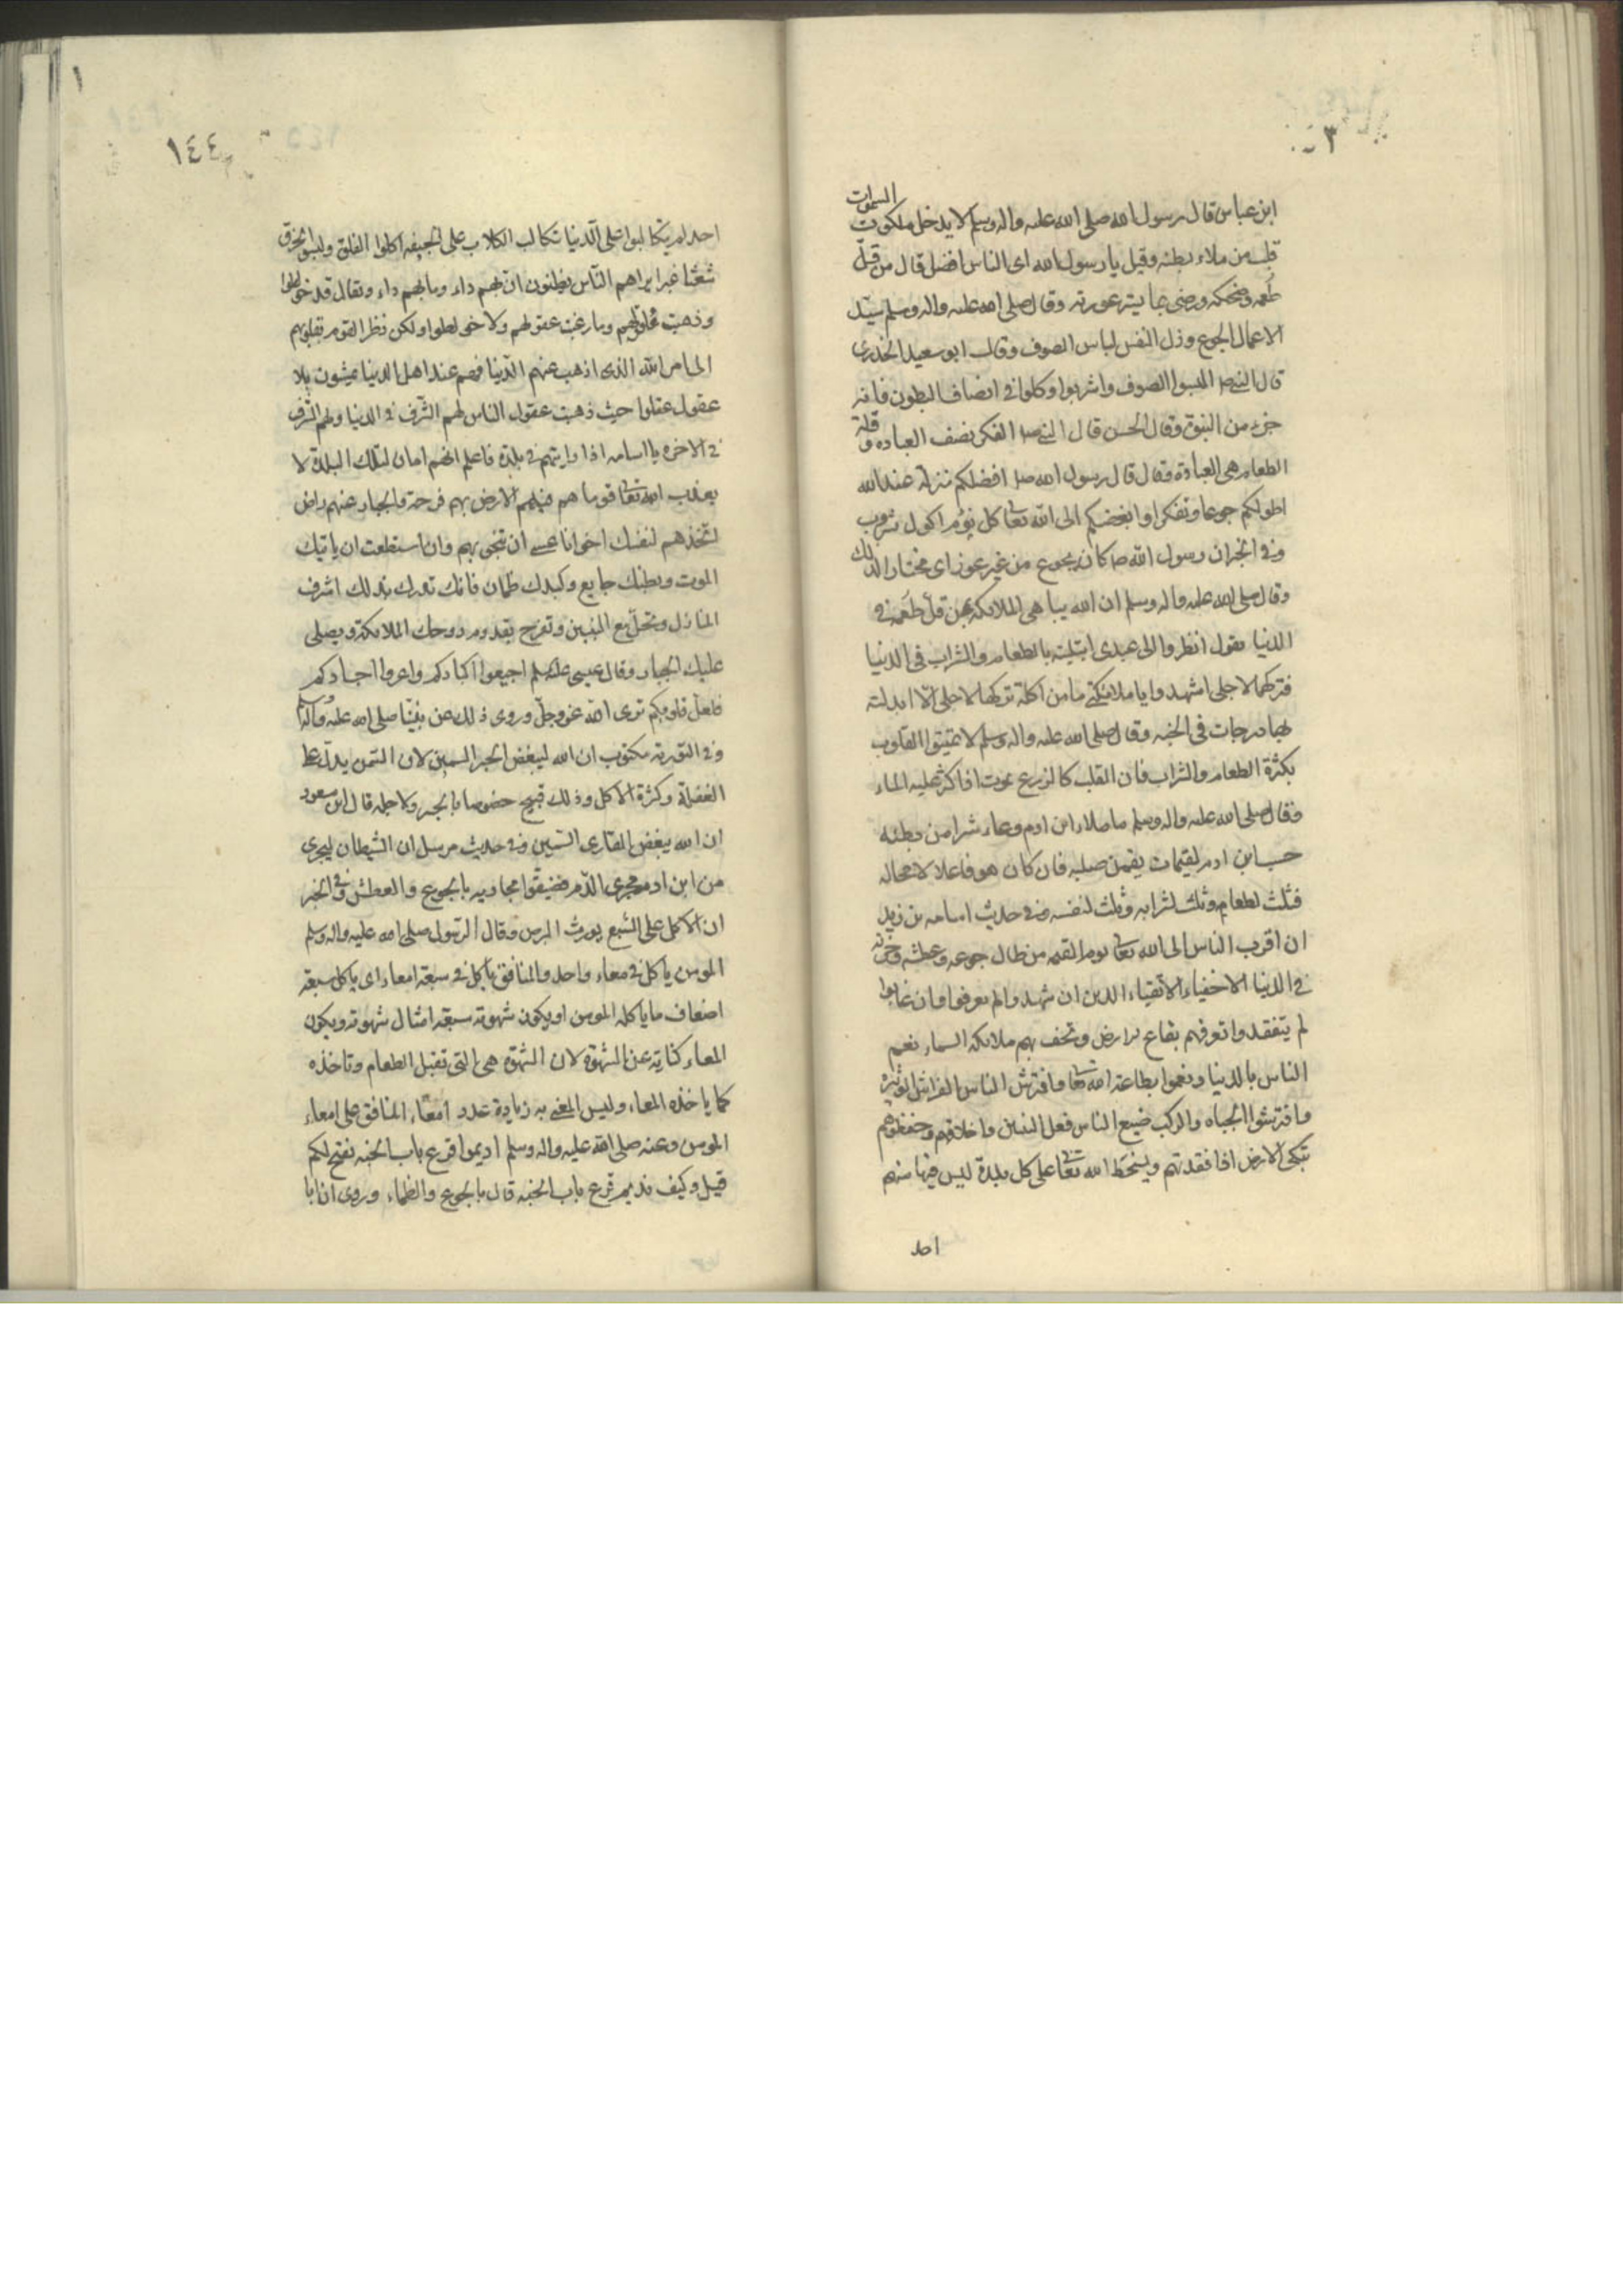 ٣
السموات
ابن عباس قال رسول الله صلى الله عليه واله وسلم لا يدخل ملكوت
قلب من ملاء بطنه وقيل يا رسول الله اى الناس افضل قال من قلّ
طُعمه وضحكه ورضى بما يستر عورته وقال صلى الله عليه واله وسلم سيّد
الاعمال الجوع وذل النفس لباس الصوف وقال ابو سعيد الخدرى
قال النبي صلا البسوا الصوف واشربوا وكلوا في انصاف البطون فانه
جزء من النبوّة وقال الحسن قال النبي صلا الفكر نصف العباده وقلة
الطعام هى العبادة وقال قال رسول الله صلا افضلكم منزلة عند الله
اطولكم جوعا وتفكرا وابغضكم الى الله تعا كل نؤم اكول شروب
وفي الخبر ان رسول الله صلا كان يجوع من غير عوز اى مختار الذلك
وقال صلى الله عليه واله وسلم ان الله يباهى الملائكة بمن قلّ طُعمه في
الدنيا يقول انظروا الى عبدى ابتليته بالطعام والشراب فى الدنيا
فتركهما لاجلى اشهدوا يا ملائكتي ما من اكلة تركها لاجلى الّا ابدلته
بها درجات فى الجنه وقال صلى الله عليه واله وسلم لا تميتوا القلوب
بكثرة الطعام والشراب فان القلب كالزرع يموت اذا كثر عليه الماء
وقال صلى الله عليه واله وسلم ما ملاء ابن ادم وعاء شرا من بطنه
حسب ابن ادم لقيمات يقمن صلبه فان كان هو فاعلا لا محاله
فثلث لطعامه وثلث لشرابه وثلث لنفسه وفي حديث اسامه بن زيد
ان اقرب الناس الى الله تعا يوم القيمه من طال جوعه وعطشه وحزنه
في الدنيا الاخفياء الاتقياء الذين ان شهدوا لم يعرفوا وان غابوا
لم يتفقدوا تعرفهم بقاع الارض وتحف بهم ملائكه السماء نعم
الناس بالدنيا ونعموا بطاعة الله تعا وافترش الناس الفراش الوثيره
وافترشوا الجباه والركب ضيع الناس فعل النبين واخلاقهم وحفظوهم
تبكى الارض اذا فقدتهم ويسخط الله تعا على كل بلدة ليس فيها منهم
احد
١
١٤٤
احد لم يتكالبوا على الدنيا تكالب الكلاب على الجيفه اكلوا الفلق ولبسوا الخرق
شعثا غبرا يراهم النّاس يظنون ان بهم داء وما بهم داء ويقال قد خولطوا
وذهبت عقولهم وما ذهبت عقولهم ولا خولطوا ولكن نظر القوم بقلوبهم
الى امر الله الذى اذهب عنهم الدّنيا فهم عند اهل الدنيا يمشون بلا
عقول عقلوا حيث ذهبت عقول الناس لهم الشّرف في الدنيا ولهم الشرف
في الاخره يا اسامه اذا رايتهم في بلدة فاعلم انهم امان لتلك البلدة لا
يعذب الله تعا قوما هم فيهم الارض بهم فرحة والجبار عنهم راض
اتّخذهم لنفسك اخوانا عسى ان تنجى بهم وان استطعت ان ياتيك
الموت وبطنك جايع وكبدك ظمان فانك تدرك بذلك اشرف
المنازل وتحلّ مع النبين وتفرح بقدوم روحك الملائكة ويصلى
عليك الجبار وقال عيسى عليه السلم اجيعوا اكبادكم واعروا اجسادكم
فلعلّ قلوبكم ترى الله عزّ وجلّ وروى ذلك عن نبيّنا صلى الله عليه واله وسلم
وفي التورية مكتوب ان الله ليبغض الحبر السمين لان السّمن يدلّ على
الغفلة وكثرة الاكل وذلك قبيح خصوصا بالحبر ولاجله قال ابن مسعود
ان الله يبغض القارى السّمين وفي حديث مرسل ان الشيطان ليجرى
من ابن ادم مجرى الدّم فضيّقوا مجاريه بالجوع والعطش وفي الخبر
ان الاكل على الشبع يورث البرص وقال الرّسول صلى الله عليه واله وسلم
المومن ياكل في معاء واحد والمنافق ياكل في سبعة امعاء اى ياكل سبعة
اضعاف ما ياكله المومن او يكون شهوته سبعة امثال شهوته ويكون
المعاء كناية عن الشهوة لان الشهوة هى التى تقبل الطعام وتاخذه
كما ياخذه المعاء وليس المعنى به زيادة عدد امعاء المنافق على امعاء
المومن وعنه صلى الله عليه واله وسلم اديموا قرع باب الجنه يفتح لكم
قيل وكيف نديم قرع باب الجنه قال بالجوع والظماء وروى ان ابا